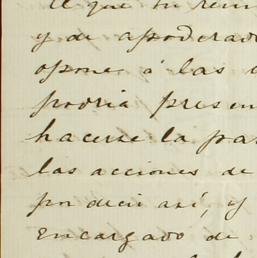 el que su
y de apoderado
opone á las
podria presen
hacerse la pa
las acciones de
por decir así, y
encargado de